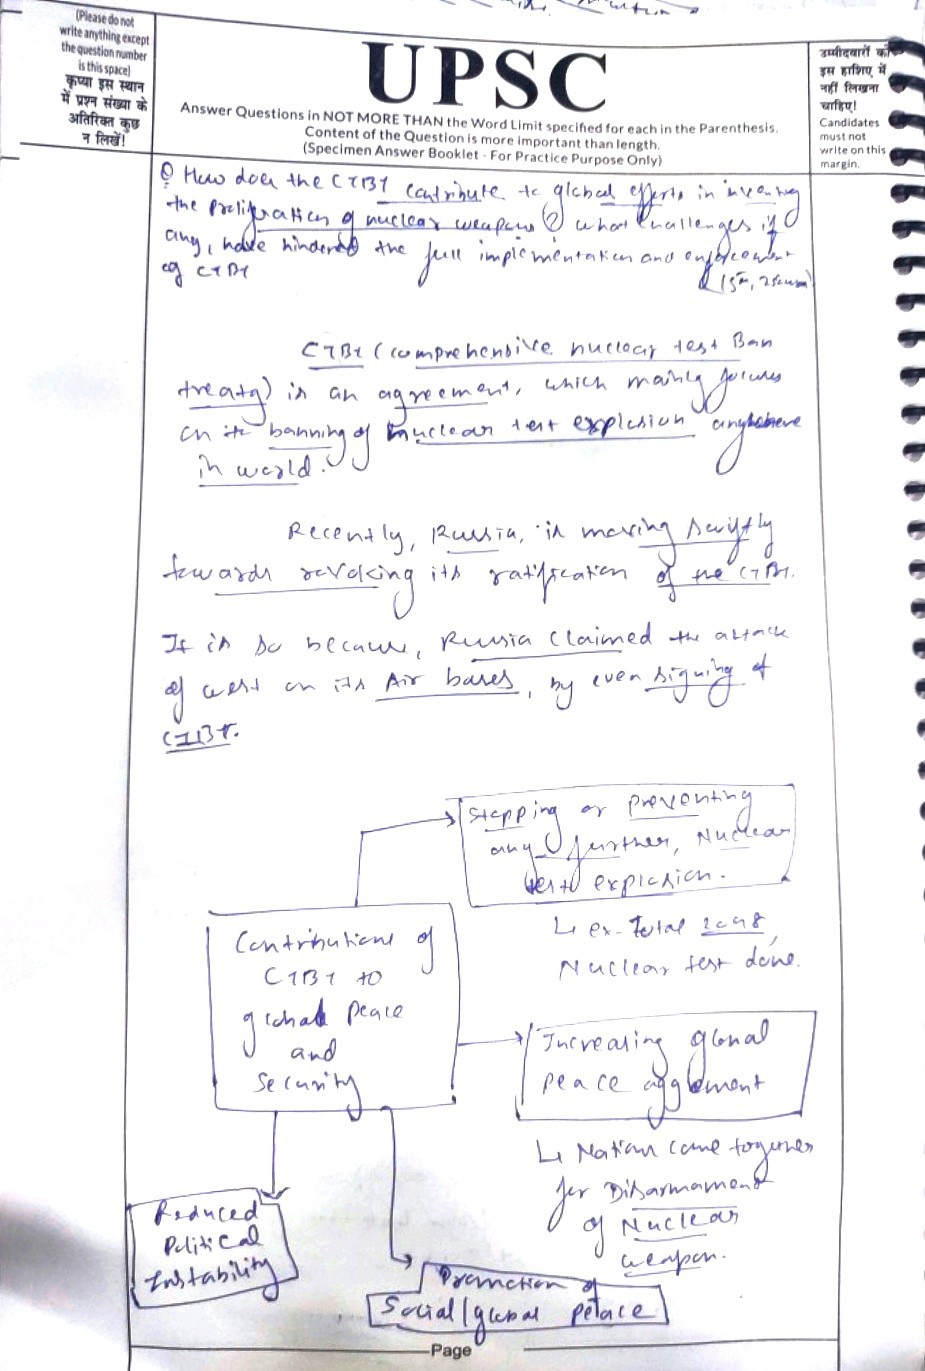 (Please do not
write anything except
the question number
is this space)
कृप्या इस स्थान
में प्रश्न संख्या के
अतिरिक्त कुछ
न लिखें!
UPSC
Answer Questions in NOT MORE THAN the Word Limit specified for each in the Parenthesis.
Content of the Question is more important than length.
(Specimen Answer Booklet - For Practice Purpose Only)
उम्मीदवारों को
इस हाशिए में
नहीं लिखना
चाहिए!
Candidates
must not
write on this
margin.
Q How does the CTBT contribute to global efforts in
the proliferation of nuclear weapons? what challenges if
any, have hindered the full implementation and enforcement
of CTBT
CTBT (comprehensive nuclear test Ban
treaty) is an agreement, which mainly focuses
on its banning of nuclear test explosion anywhere
in world.
Recently, Russia, is moving swiftly
towards revoking its ratification of the CTBT.
It is so because, Russia claimed the attack
of west on its Air bases, by even signing of
CTBT.
Stopping or preventing
any further, Nuclear
test explosion.
↳ ex- Total 2048,
Nuclear test done.
Contributions of
CTBT to
global Peace
and
Security
Increasing global
peace agglement
↳ Nation came together
for Disarmament
of Nuclear
weapon.
Reduced
Political
Instability
Promotion of
Social/global peace
Page